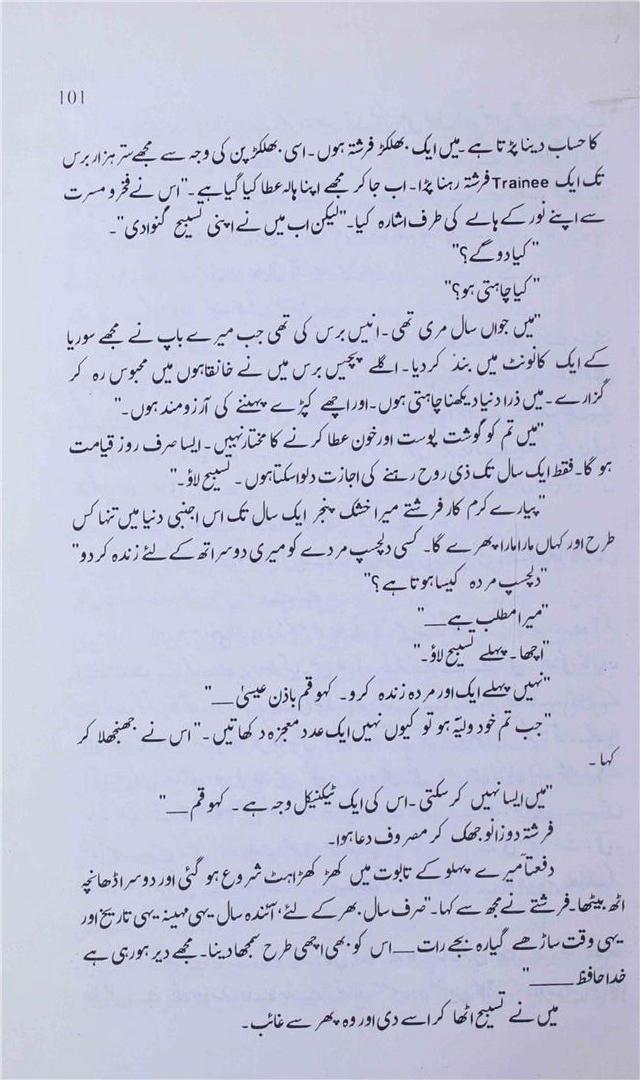 101
کا حساب دینا پڑتا ہے۔ میں ایک بھلکڑ فرشتہ ہوں۔ اسی بھلکڑپن کی وجہ سے مجھے ستر ہزار برس
تک ایک Trainee فرشتہ رہنا پڑا۔ اب جا کر مجھے اپنا ہالہ عطا کیا گیا ہے۔" اس نے فخر و مسرت
سے اپنے نور کے ہالے کی طرف اشارہ کیا۔ "لیکن اب میں نے اپنی تسبیح گنوا دی"۔
"کیا دو گے؟"
"کیا چاہتی ہو؟"
"میں جواں سال مری تھی۔ انیس برس کی تھی جب میرے باپ نے مجھے سوریا
کے ایک کانونٹ میں بند کر دیا۔ اگلے پچیس برس میں نے خانقاہوں میں محبوس رہ کر
گزارے۔ میں ذرا دنیا دیکھنا چاہتی ہوں۔ اور اچھے کپڑے پہننے کی آرزومند ہوں۔"
"میں تم کو گوشت پوست اور خون عطا کرنے کا مختار نہیں۔ ایسا صرف روز قیامت
ہو گا۔ فقط ایک سال تک ذی روح رہنے کی اجازت دلوا سکتا ہوں۔ تسبیح لاؤ۔"
"پیارے کرم کار فرشتے میرا خشک پنجر ایک سال تک اس اجنبی دنیا میں تنہا کس
طرح اور کہاں مارا مارا پھرے گا۔ کسی دلچسپ مردے کو میری دوسراتھ کے لئے زندہ کر دو"
"دلچسپ مردہ کیسا ہوتا ہے؟"
"میرا مطلب ہے__"
"اچھا۔ پہلے تسبیح لاؤ۔"
"نہیں پہلے ایک اور مردہ زندہ کرو۔ کہو قم باذن عیسیٰ__"
"جب تم خود ولیّہ ہو تو کیوں نہیں ایک عدد معجزہ دکھاتیں۔" اس نے جھنجھلا کر
کہا۔
"میں ایسا نہیں کر سکتی۔ اس کی ایک ٹیکنیکل وجہ ہے۔ کہو قم__"
فرشتہ دوزانو جھک کر مصروف دعا ہوا۔
دفعتاً میرے پہلو کے تابوت میں کھڑکھڑاہٹ شروع ہو گئی اور دوسرا ڈھانچہ
اٹھ بیٹھا۔ فرشتے نے مجھ سے کہا۔ "صرف سال بھر کے لئے، آئندہ سال یہی مہینہ یہی تاریخ اور
یہی وقت ساڑھے گیارہ بجے رات__اس کو بھی اچھی طرح سمجھا دینا۔ مجھے دیر ہو رہی ہے
خدا حافظ____"
میں نے تسبیح اٹھا کر اسے دی اور وہ پھر سے غائب۔